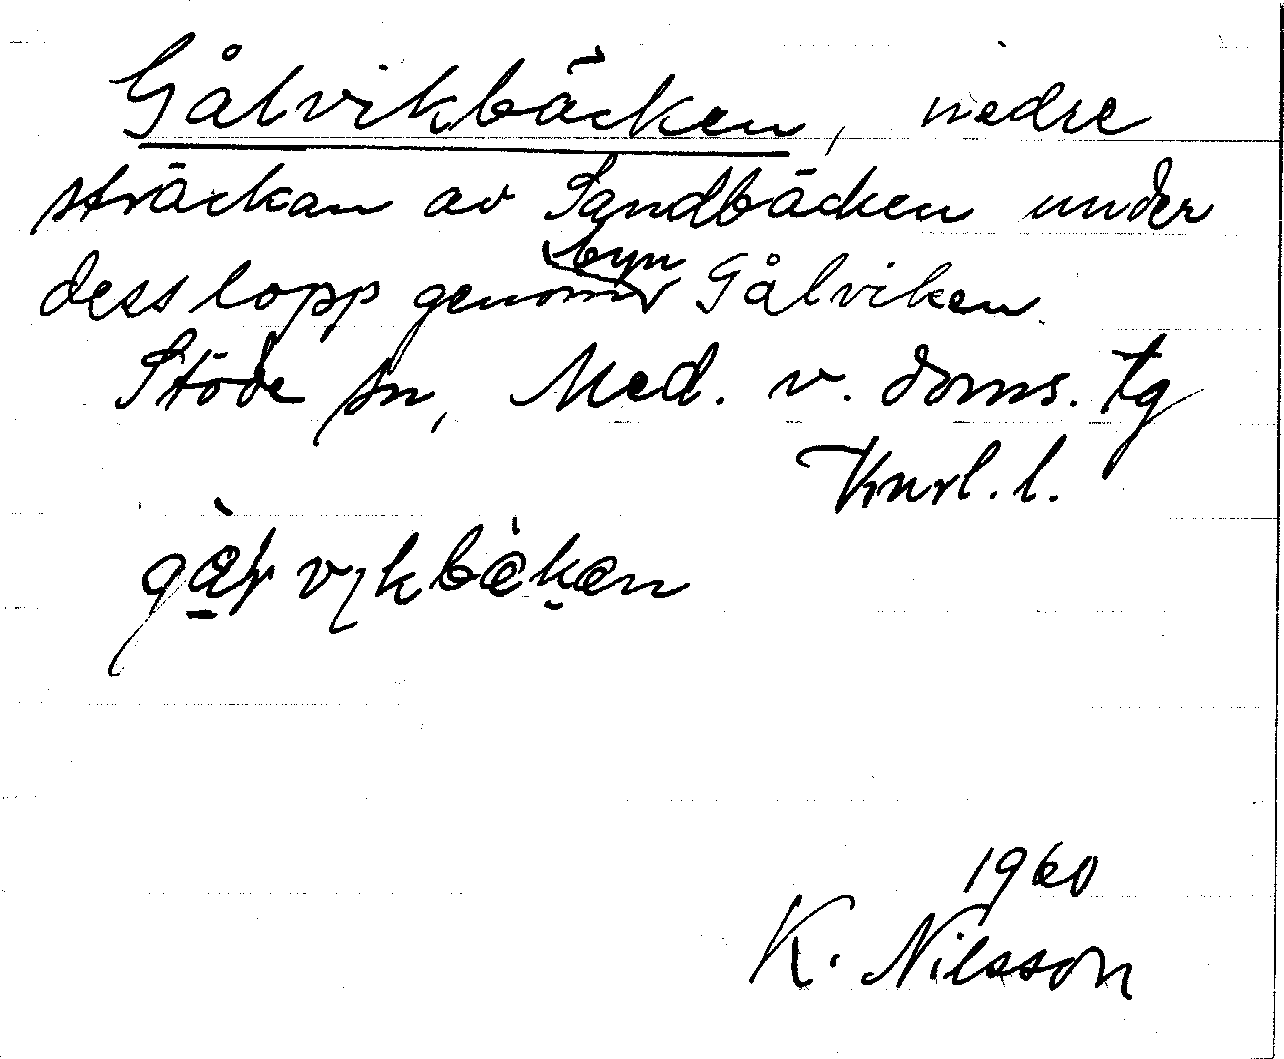 Gålvikbäcken, nedre
sträckan av Sandbäcken under
dess lopp genom byn Gålviken.
Stöde sn, Med. v. doms. tg
Knrl. l.
1960
K. Nilsson